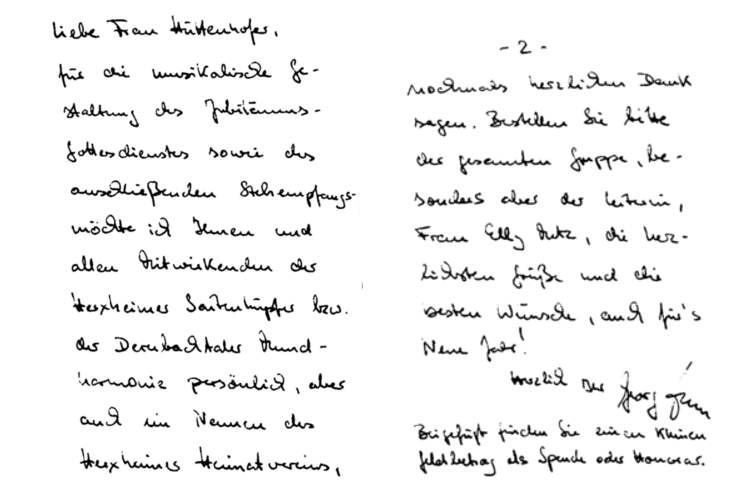 Liebe Frau Hüttenhofer,
für die musikalische Ge-
staltung des Jubiläums-
Gottesdienstes sowie des
anschließenden Stehempfangs
möchte ich Ihnen und
allen Mitwirkenden der
Herxheimer Saitenhüpfer bzw.
der Dernbachtaler Mund-
harmonie persönlich, aber
auch im Namen des
Herxheimer Heimatvereins,
- 2 -
nochmals herzlichen Dank
sagen. Bestellen Sie bitte
der gesamten Gruppe, be-
sonders aber der Leiterin,
Frau Elly, die herz-
lichsten Grüße und die
besten Wünsche, auch für's
Neue Jahr!
Herzlich Ihr Georg
Beigefügt finden Sie einen kleinen
Geldbetrag als Spende oder Honorar.